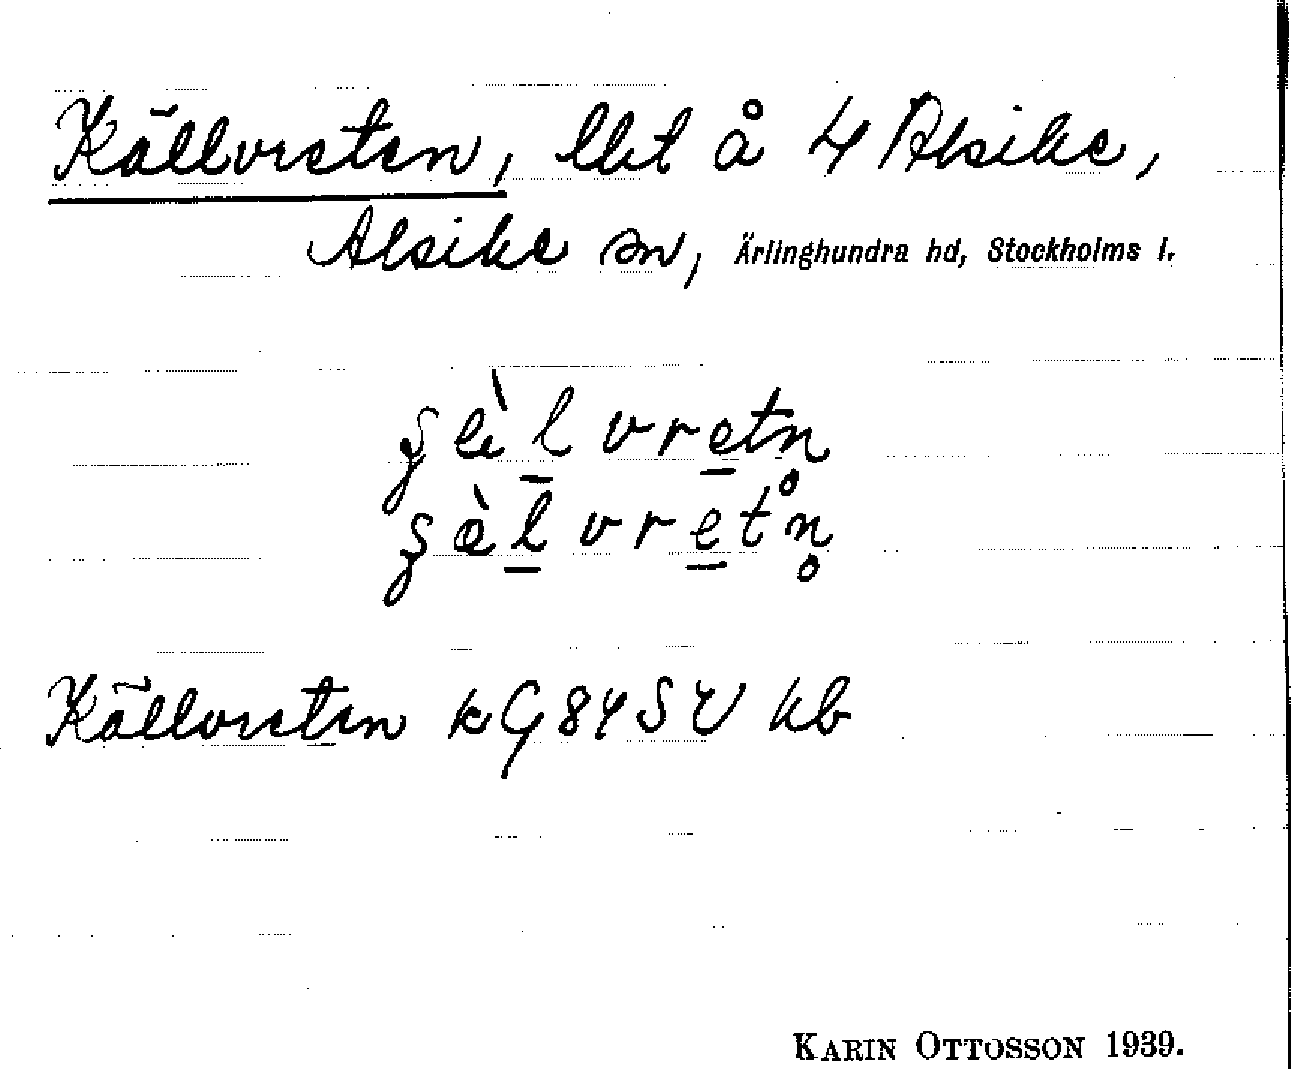 Källvreten, lht å 4 Alsike,
Alsike sn, Ärlinghundra hd, Stockholms l.
Källvreten kG84SV kb
KARIN OTTOSSON 1939.